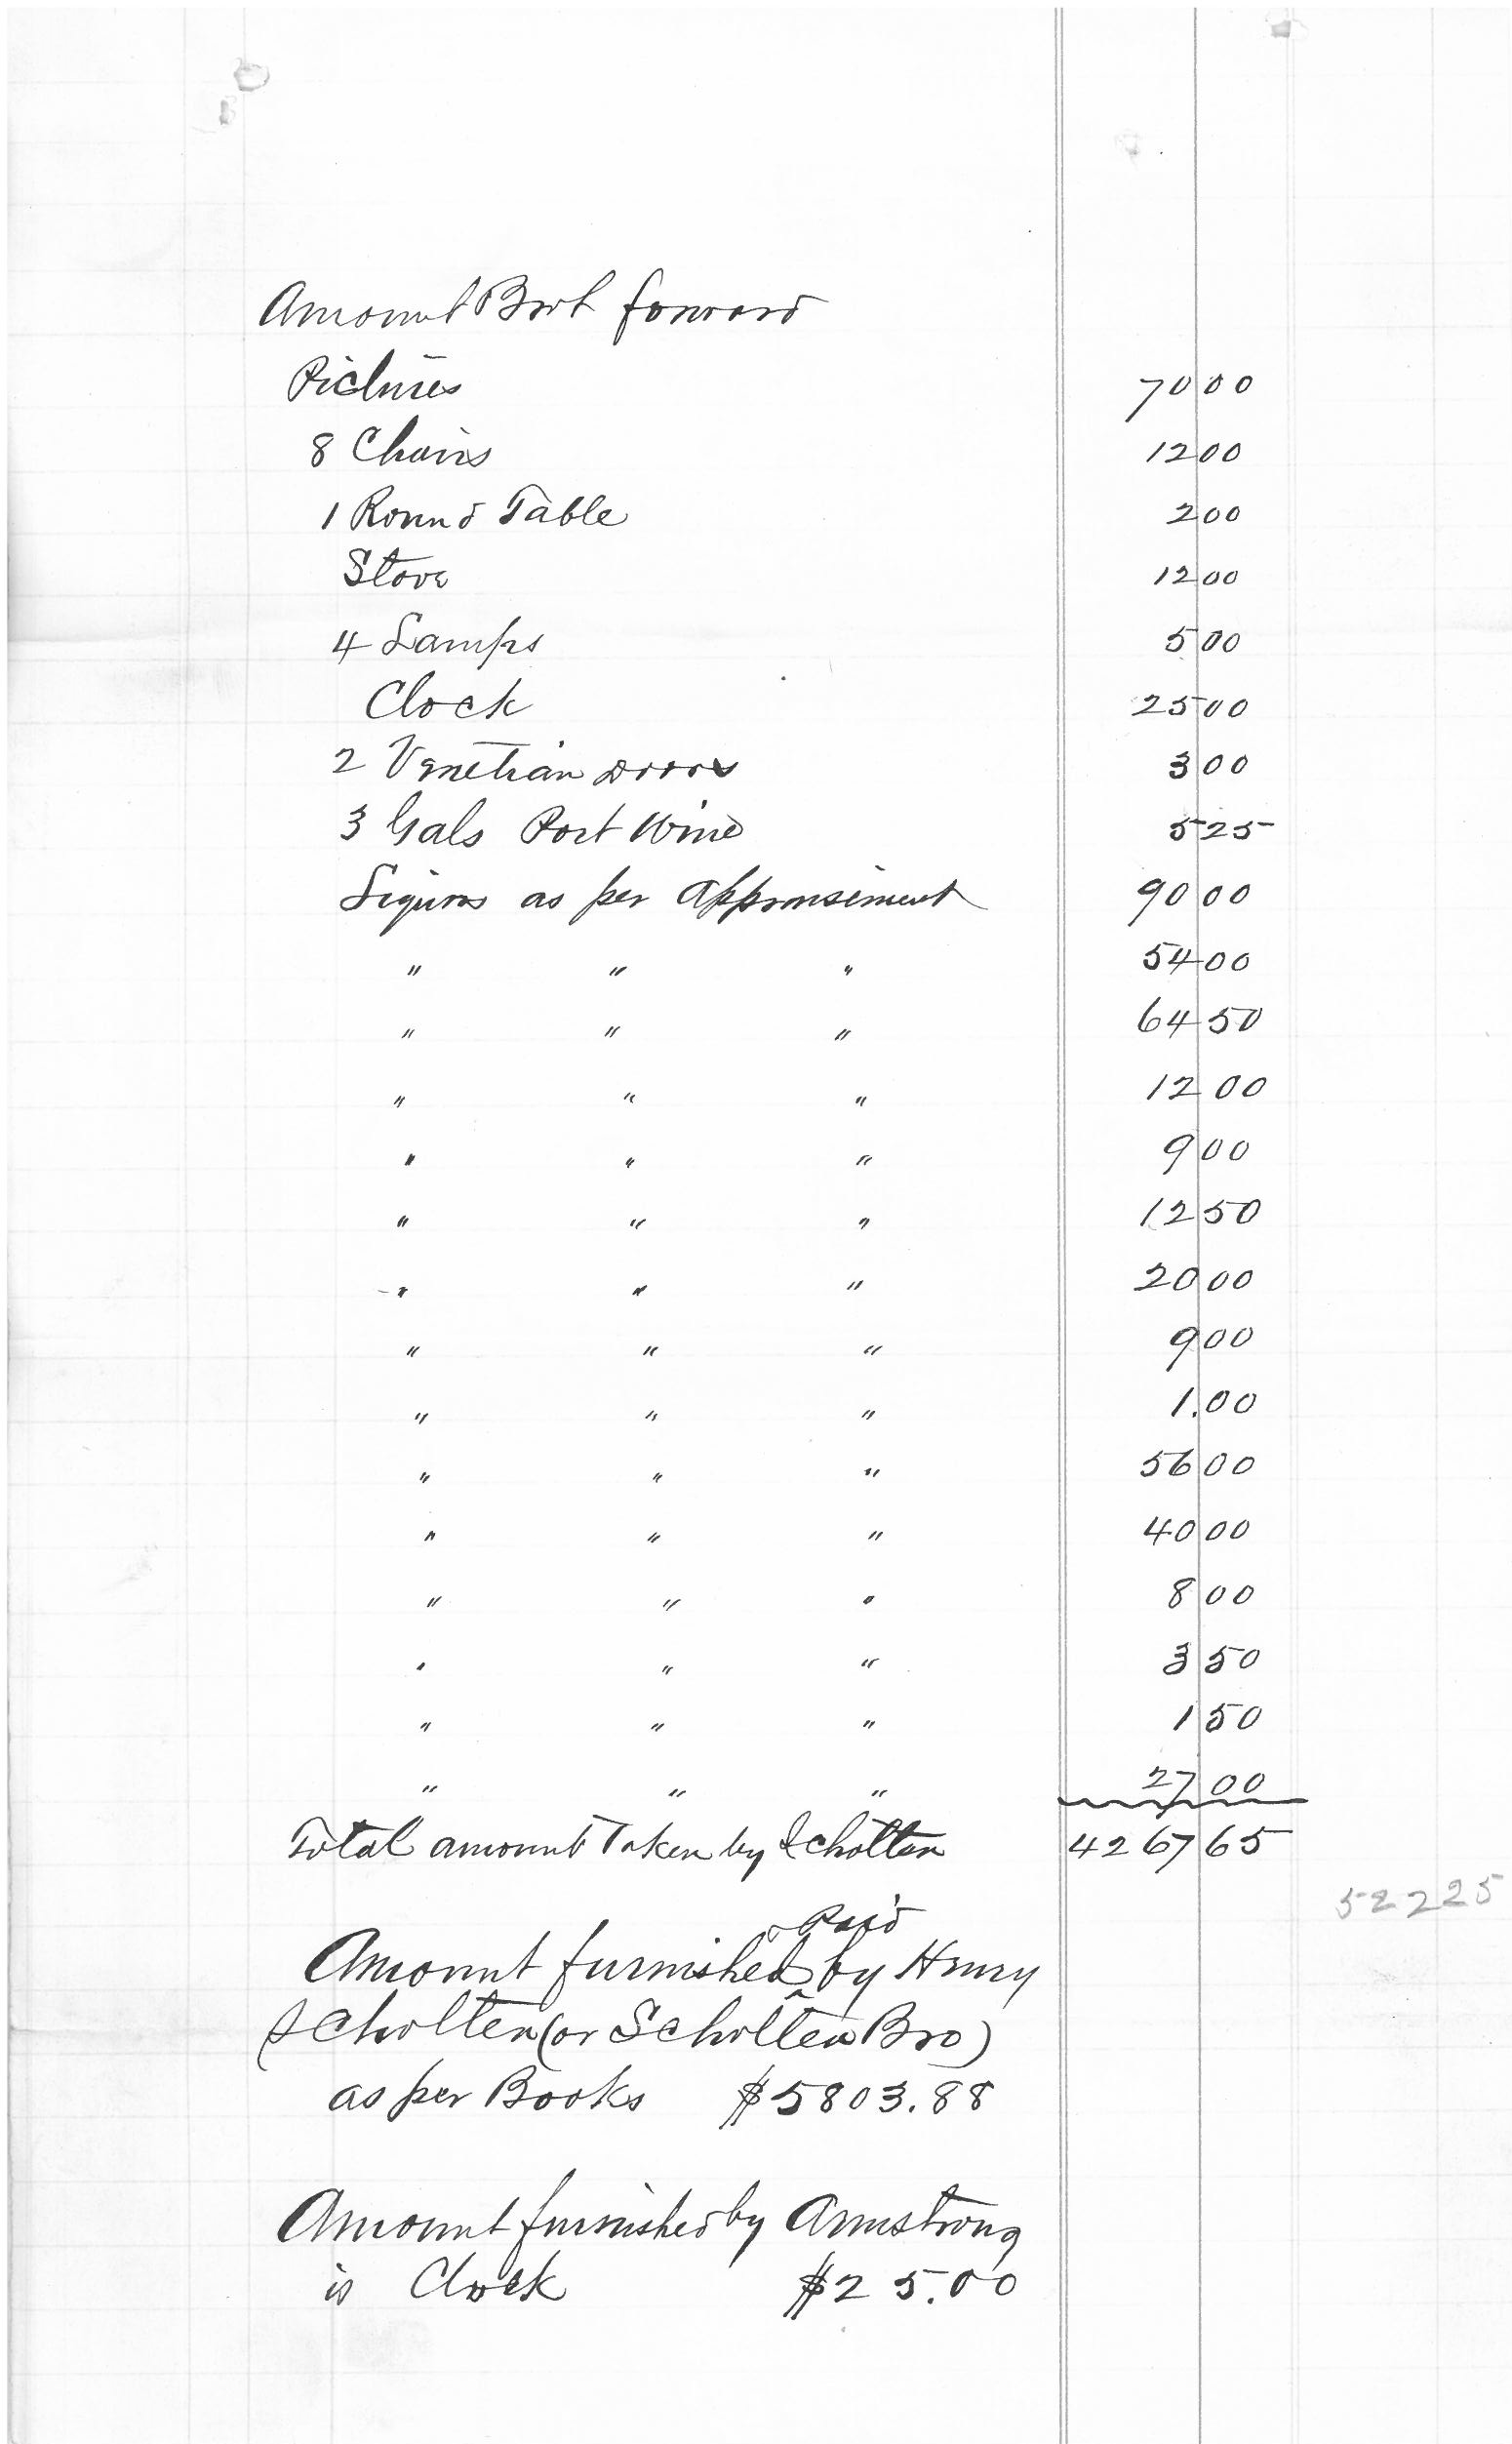 Amount Brot forward
Pictures 70 00
8 Chairs 12 00
1 Round Table 2 00
Stove 12 00
4 Lamps 5 00
Clock 25 00
2 Venetian Doors 3 00
3 Gals Port Wine 5 25
Liquors as per Appraisement 90 00
" " " 54 00
" " " 64 50
" " " 12 00
" " " 9 00
" " " 12 50
" " " 20 00
" " " 9 00
" " " 1.00
" " " 56 00
" " " 40 00
" " " 8 00
" " " 3 50
" " " 1 50
" " " 27 00
Total amount Taken by Scholten 4267 65
522 25
Paid
Amount furnished ^ by Henry
Scholten (or Scholten Bro)
as per Books $5803.88
Amount furnished by Armstrong
is Clock $25.00